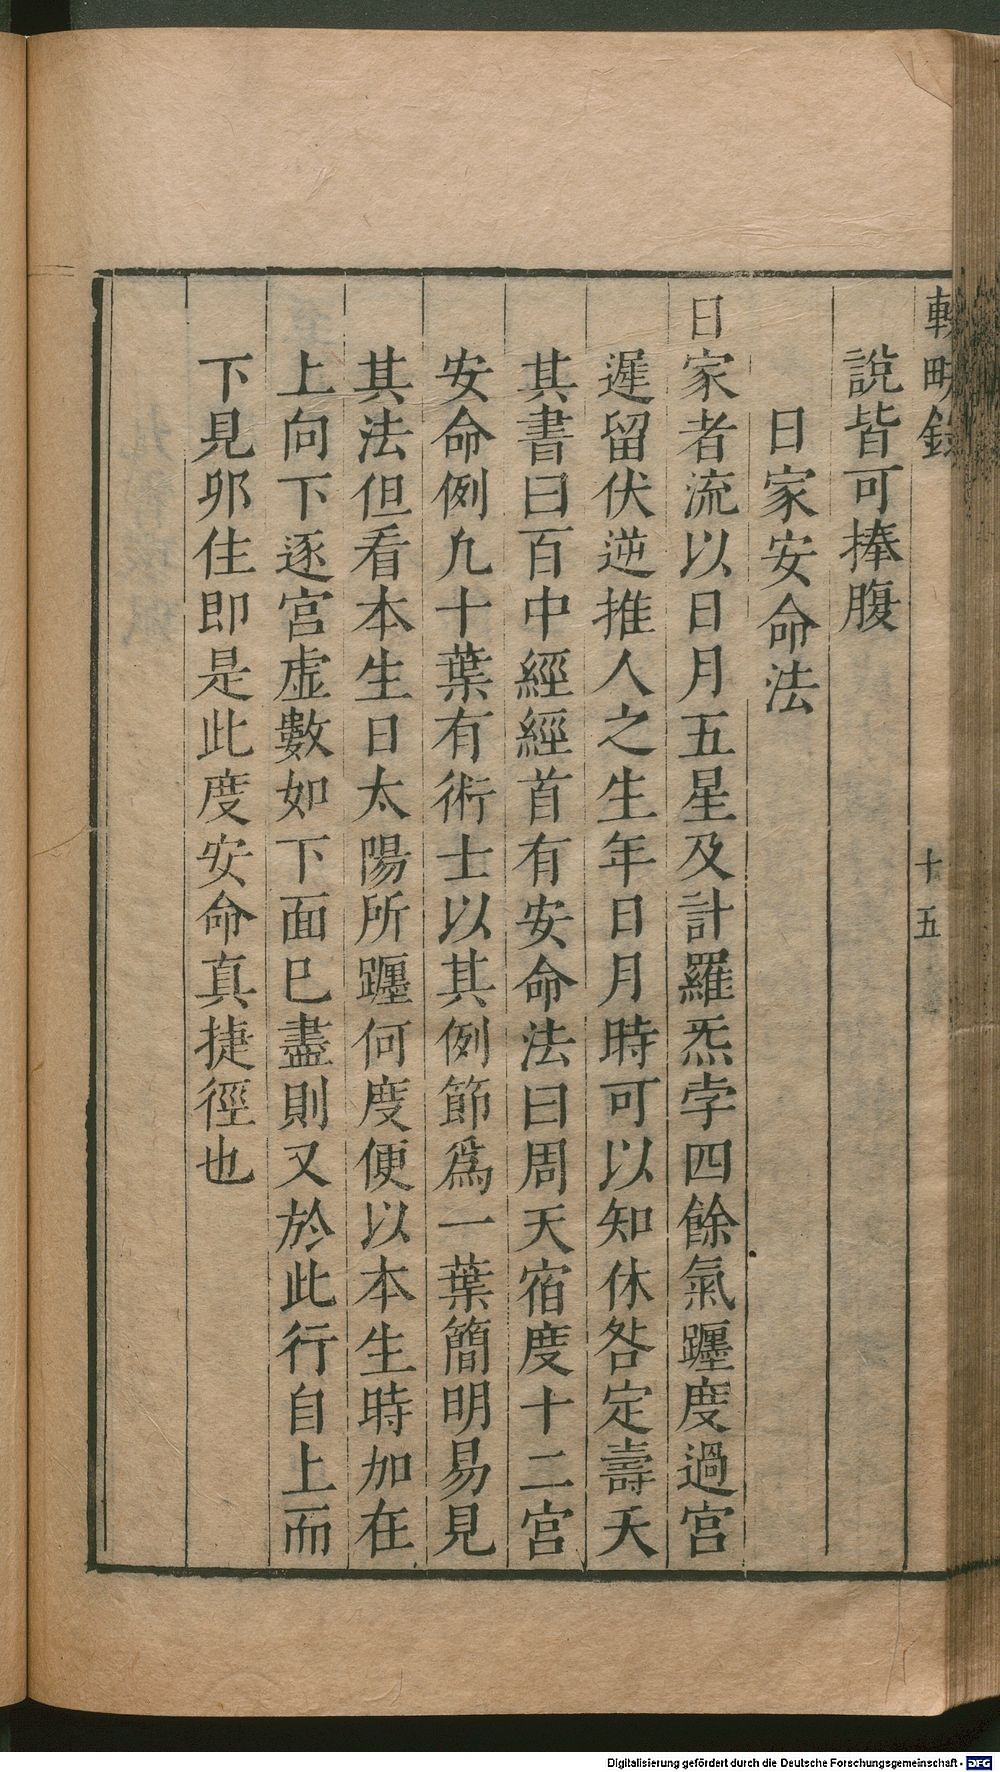 輟畊錄
十五
說皆可捧腹
日家安命法
日家者流以日月五星及計羅炁孛四餘氣躔度過宮
遲留伏逆推人之生年日月時可以知休咎定壽夭
其書曰百中經經首有安命法曰周天宿度十二宮
安命例九十葉有術士以其例節爲一葉簡明易見
其法但看本生日太陽所躔何度便以本生時加在
上向下逐宮虛數如下面巳盡則又於此行自上而
下見卯住即是此度安命真捷徑也
Digitalisierung gefördert durch die Deutsche Forschungsgemeinschaft - DFG